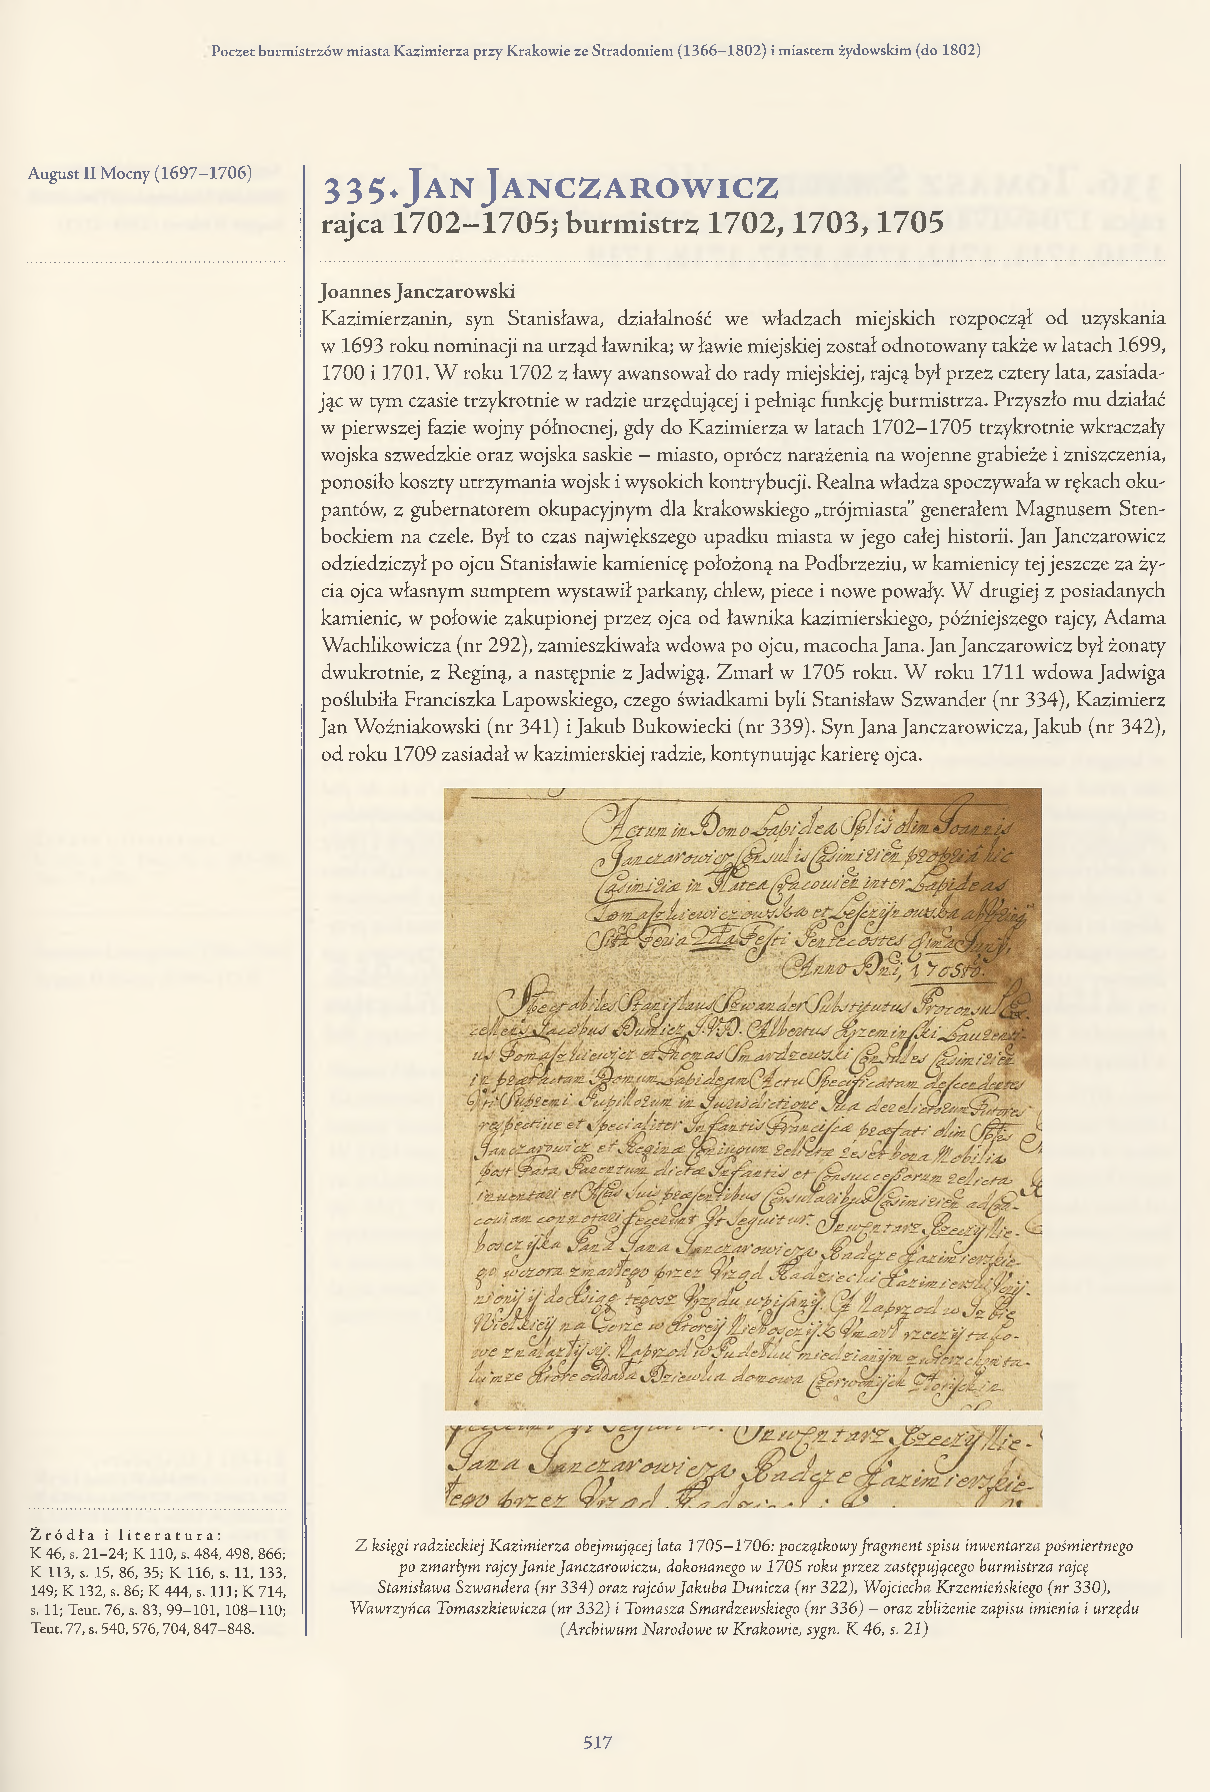 Poczet burmistrzów miasta Kazimierza przy Krakowie ze Stradomiem (1366–1802) i miastem żydowskim (do 1802)
August II Mocny (1697–1706)
335. Jan Janczarowicz
rajca 1702–1705; burmistrz 1702, 1703, 1705
Joannes Janczarowski
Kazimierzanin, syn Stanisława, działalność we władzach miejskich rozpoczął od uzyskania
w 1693 roku nominacji na urząd ławnika; w ławie miejskiej został odnotowany także w latach 1699,
1700 i 1701. W roku 1702 z ławy awansował do rady miejskiej, rajcą był przez cztery lata, zasiada-
jąc w tym czasie trzykrotnie w radzie urzędującej i pełniąc funkcję burmistrza. Przyszło mu działać
w pierwszej fazie wojny północnej, gdy do Kazimierza w latach 1702–1705 trzykrotnie wkraczały
wojska szwedzkie oraz wojska saskie – miasto, oprócz narażenia na wojenne grabieże i zniszczenia,
ponosiło koszty utrzymania wojsk i wysokich kontrybucji. Realna władza spoczywała w rękach oku-
pantów, z gubernatorem okupacyjnym dla krakowskiego „trójmiasta” generałem Magnusem Sten-
bockiem na czele. Był to czas największego upadku miasta w jego całej historii. Jan Janczarowicz
odziedziczył po ojcu Stanisławie kamienicę położoną na Podbrzeziu, w kamienicy tej jeszcze za ży-
cia ojca własnym sumptem wystawił parkany, chlew, piece i nowe powały. W drugiej z posiadanych
kamienic, w połowie zakupionej przez ojca od ławnika kazimierskiego, późniejszego rajcy, Adama
Wachlikowicza (nr 292), zamieszkiwała wdowa po ojcu, macocha Jana. Jan Janczarowicz był żonaty
dwukrotnie, z Reginą, a następnie z Jadwigą. Zmarł w 1705 roku. W roku 1711 wdowa Jadwiga
poślubiła Franciszka Lapowskiego, czego świadkami byli Stanisław Szwander (nr 334), Kazimierz
Jan Woźniakowski (nr 341) i Jakub Bukowiecki (nr 339). Syn Jana Janczarowicza, Jakub (nr 342),
od roku 1709 zasiadał w kazimierskiej radzie, kontynuując karierę ojca.
Actum in Domo Lapidea olim Joannis
Janczarowicz Consulis hic
in Platea inter Lapideas
et
Feria 2da Festi Pentecostes
Anno Dni, 1705to.
Spectabiles Stanislaus Szwander Substitutus Proconsul
Jacobus Dunicz Albertus Krzeminski
Tomaszkiewicz et Thomas Smardzewski Consules
in Domum Lapideam Actu Specificatam
in Jurisdictione Sua
respective et Specialiter Infantis olim
Janczarowicz et Regina et bona Mobilia
post Fata Parentum Infantis et
et
fecerunt Ut Sequitur. Inwentarz Rzeczy Nie-
Pana Jana Janczarowicza Radzce Kazimierskie-
go wczora zmarłego przez Vrząd Radziecki
do tegosz Vrzędu wpisany. Naprzod w Izbie
na Gorze w Ktorey Vmarł rzeczy
Naprzod w Pudełku miedzianym
Ktore oddała Dziewka domowa
Inwentarz Rzeczy Nie-
Jana Janczarowicza Radzce Kazimierskie-
przez Vrząd
Źródła i literatura:
K 46, s. 21–24; K 110, s. 484, 498, 866;
K 113, s. 15, 86, 35; K 116, s. 11, 133,
149; K 132, s. 86; K 444, s. 111; K 714,
s. 11; Teut. 76, s. 83, 99–101, 108–110;
Teut. 77, s. 540, 576, 704, 847–848.
Z księgi radzieckiej Kazimierza obejmującej lata 1705–1706: początkowy fragment spisu inwentarza pośmiertnego
po zmarłym rajcy Janie Janczarowiczu, dokonanego w 1705 roku przez zastępującego burmistrza rajcę
Stanisława Szwandera (nr 334) oraz rajców Jakuba Dunicza (nr 322), Wojciecha Krzemieńskiego (nr 330),
Wawrzyńca Tomaszkiewicza (nr 332) i Tomasza Smardzewskiego (nr 336) – oraz zbliżenie zapisu imienia i urzędu
(Archiwum Narodowe w Krakowie, sygn. K 46, s. 21)
517